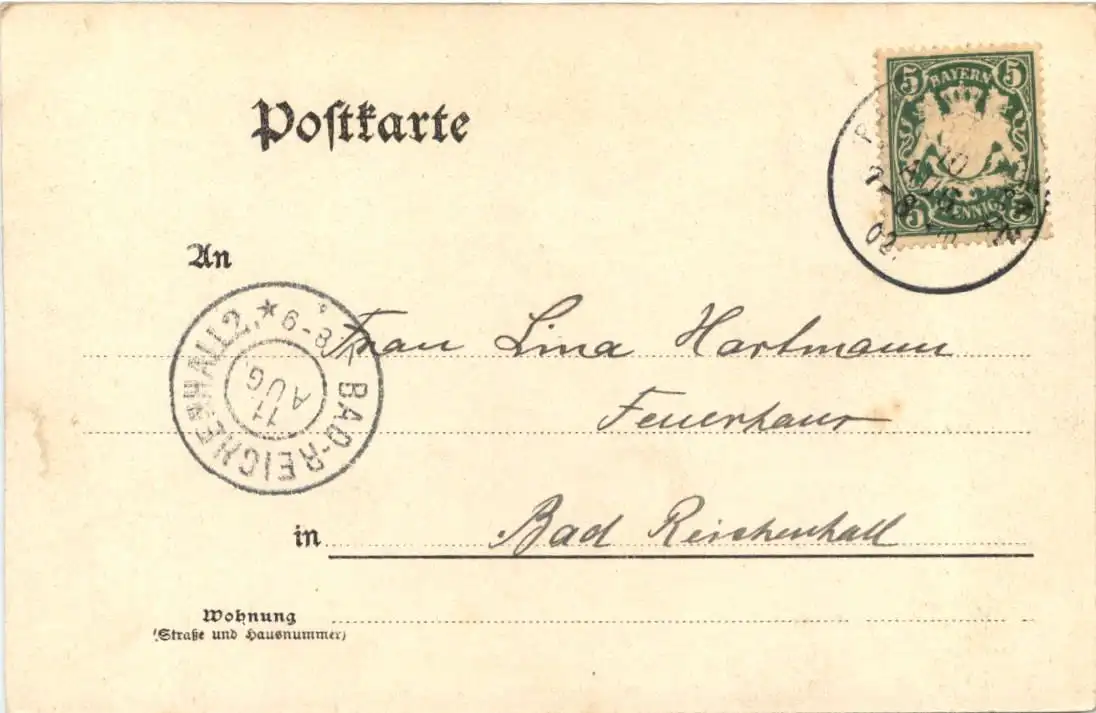 Postkarte
5 BAYERN 5
5 PFENNIG 5
10
AUG
7-8
02.
An
BAD-REICHENHALL 2. ★ 6-8
11
AUG.
Frau Lina Hartmann
Feuerhaus
in Bad Reichenhall
Wohnung
(Straße und Hausnummer)